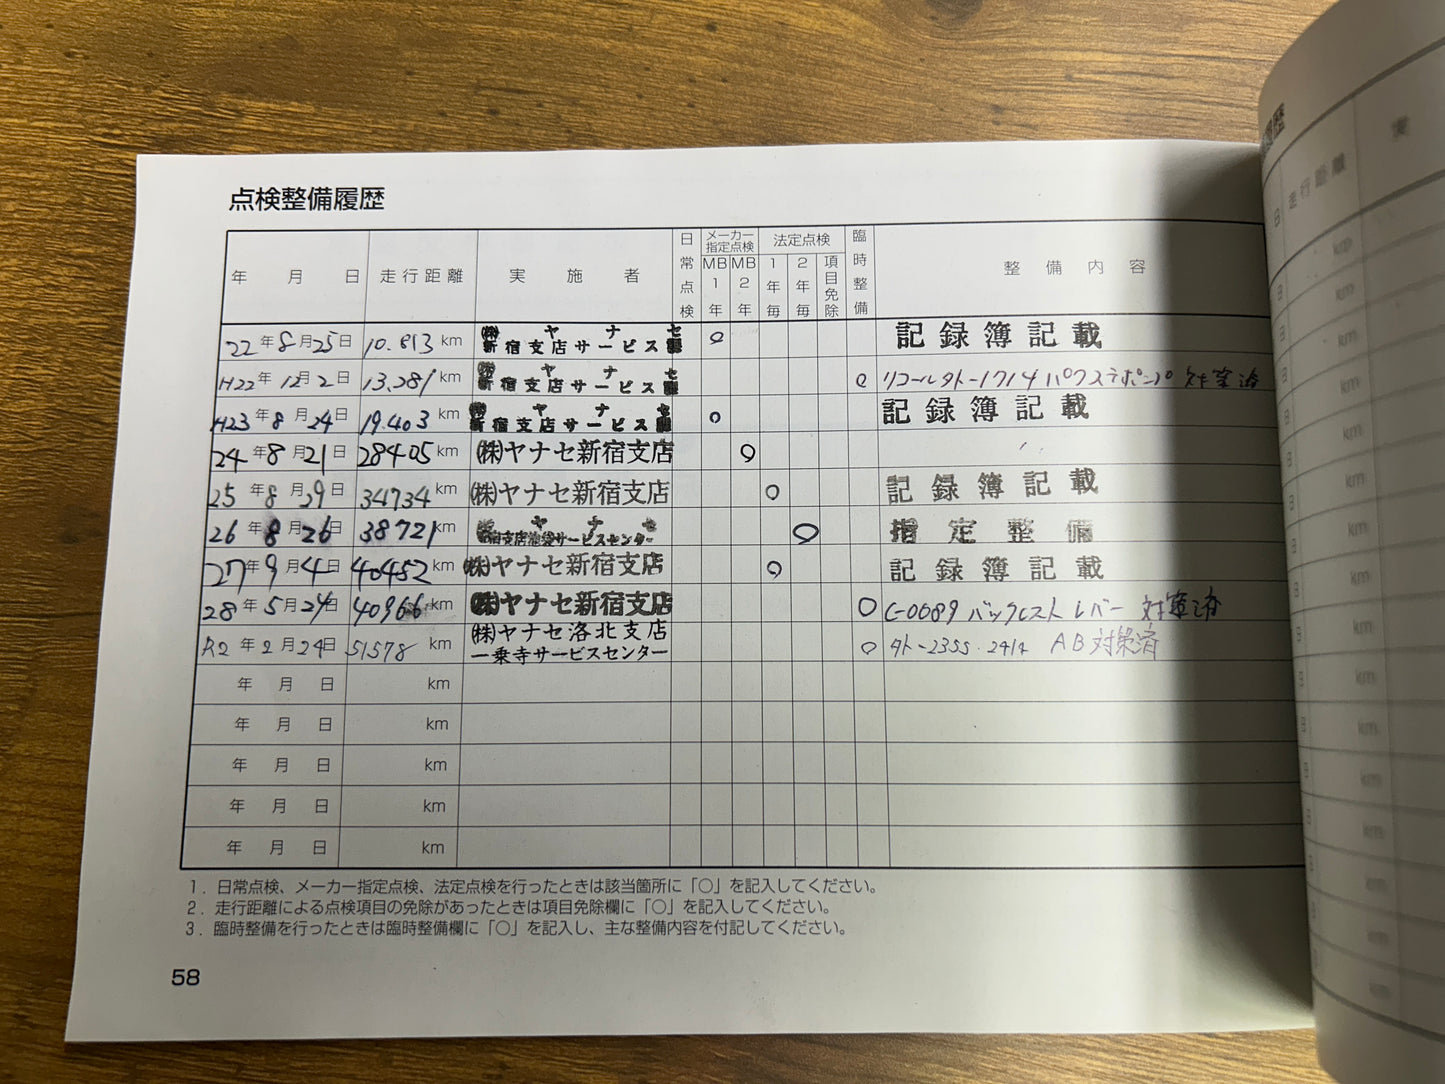 点検整備履歴
年 月 日 走行距離 実施者 日常点検 メーカー指定点検 MB1年 MB2年 法定点検 1年毎 2年毎 項目免除 臨時整備 整備内容
22年8月25日 10.813 km ㈱ヤナセ 新宿支店サービス課 ○ 記録簿記載
H22年12月2日 13.281 km ㈱ヤナセ 新宿支店サービス課 ○ リコールタト-1714 パワステポンプ 対策済
H23年8月24日 19.403 km ㈱ヤナセ 新宿支店サービス課 ○ 記録簿記載
24年8月21日 28405 km ㈱ヤナセ新宿支店 ○
25年8月29日 34734 km ㈱ヤナセ新宿支店 ○ 記録簿記載
26年8月26日 38721 km ヤナセ 新宿支店池袋サービスセンター ○ 指定整備
27年9月4日 40452 km ㈱ヤナセ新宿支店 ○ 記録簿記載
28年5月24日 40966 km ㈱ヤナセ新宿支店 ○ C-0089 バックレスト レバー 対策済
R2年2月24日 51578 km ㈱ヤナセ洛北支店 一乗寺サービスセンター ○ タト-2355・2414 AB対策済
年 月 日 km
年 月 日 km
年 月 日 km
年 月 日 km
年 月 日 km
1．日常点検、メーカー指定点検、法定点検を行ったときは該当箇所に「○」を記入してください。
2．走行距離による点検項目の免除があったときは項目免除欄に「○」を記入してください。
3．臨時整備を行ったときは臨時整備欄に「○」を記入し、主な整備内容を付記してください。
58
走行距離